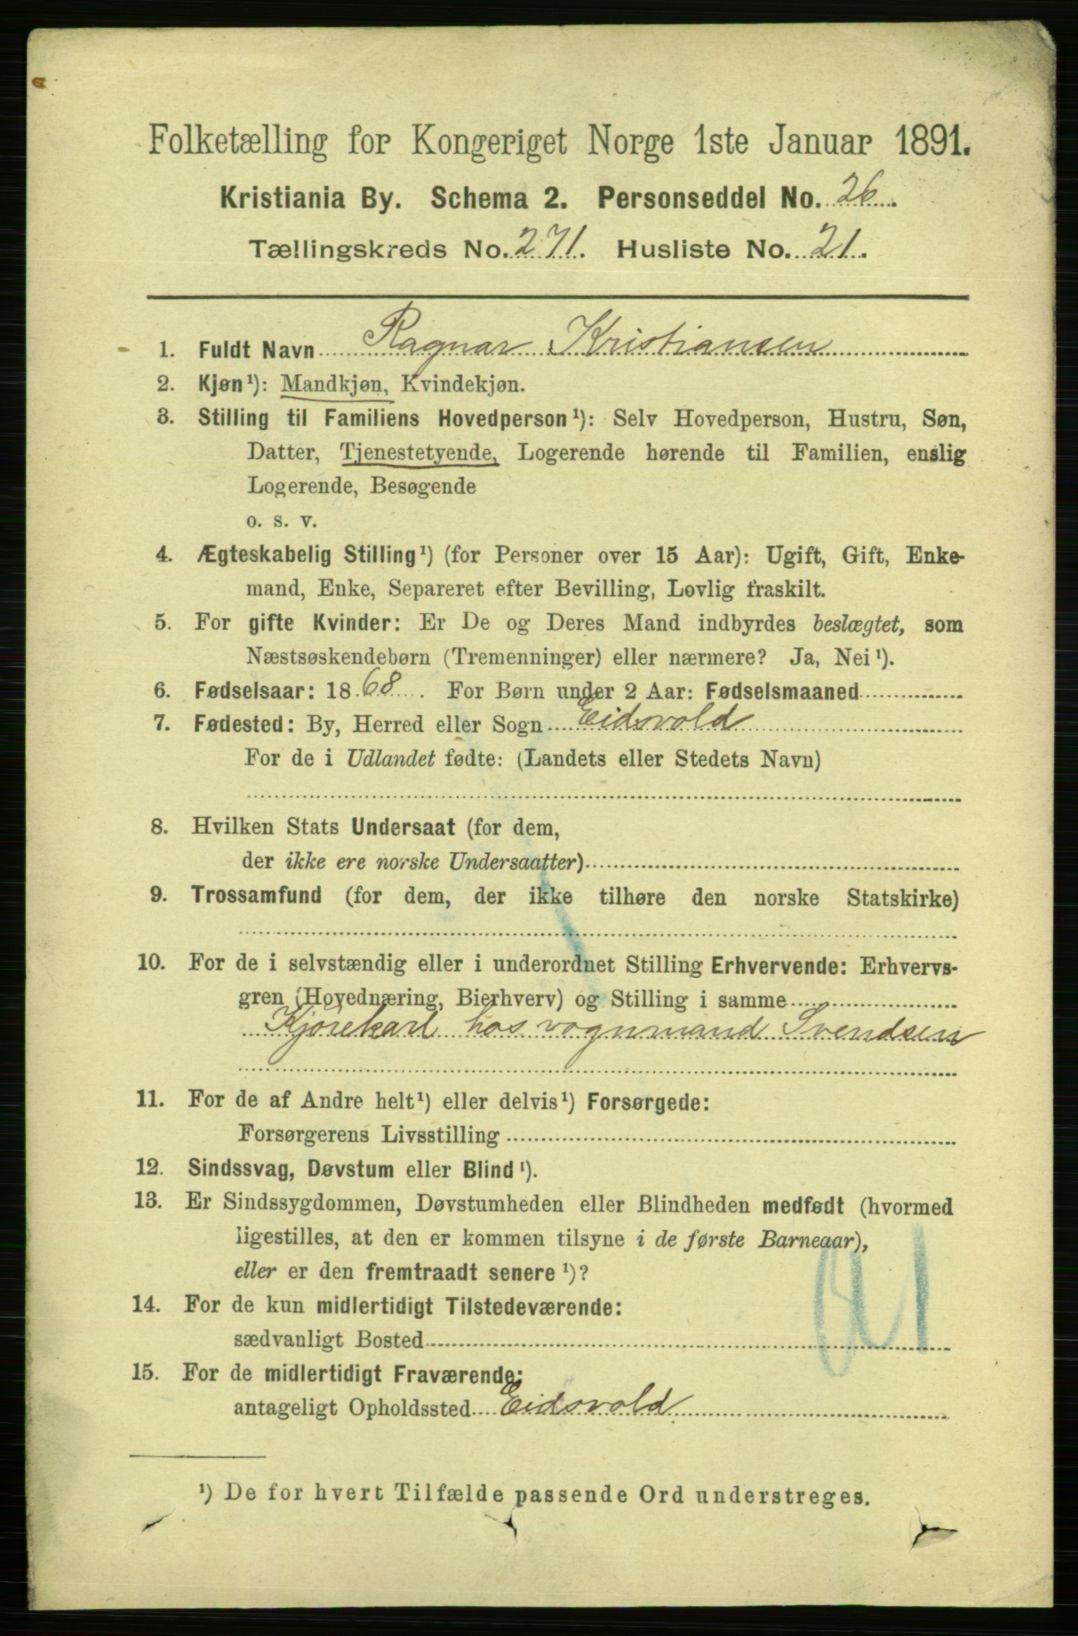 Folketælling for Kongeriget Norge 1ste Januar 1891.
Kristiania By. Schema 2. Personseddel No. 26.
Tællingskreds No. 271. Husliste No. 21.
1. Fuldt Navn Ragnar Kristiansen
2. Kjøn¹): Mandkjøn, Kvindekjøn.
3. Stilling til Familiens Hovedperson¹): Selv Hovedperson, Hustru, Søn,
Datter, Tjenestetyende, Logerende hørende til Familien, enslig
Logerende, Besøgende
o. s. v.
4. Ægteskabelig Stilling¹) (for Personer over 15 Aar): Ugift, Gift, Enke-
mand, Enke, Separeret efter Bevilling, Lovlig fraskilt.
5. For gifte Kvinder: Er De og Deres Mand indbyrdes beslægtet, som
Næstsøskendebørn (Tremenninger) eller nærmere? Ja, Nei¹).
6. Fødselsaar: 1868. For Børn under 2 Aar: Fødselsmaaned
7. Fødested: By, Herred eller Sogn Eidsvold
For de i Udlandet fødte: (Landets eller Stedets Navn)
8. Hvilken Stats Undersaat (for dem,
der ikke ere norske Undersaatter)
9. Trossamfund (for dem, der ikke tilhøre den norske Statskirke)
10. For de i selvstændig eller i underordnet Stilling Erhvervende: Erhvervs-
gren (Hovednæring, Bierhverv) og Stilling i samme
Kjørekarl hos vognmand Svendsen
11. For de af Andre helt¹) eller delvis¹) Forsørgede:
Forsørgerens Livsstilling
12. Sindssvag, Døvstum eller Blind¹).
13. Er Sindssygdommen, Døvstumheden eller Blindheden medfødt (hvormed
ligestilles, at den er kommen tilsyne i de første Barneaar),
eller er den fremtraadt senere¹)?
14. For de kun midlertidigt Tilstedeværende:
sædvanligt Bosted
15. For de midlertidigt Fraværende:
antageligt Opholdssted Eidsvold
¹) De for hvert Tilfælde passende Ord understreges.